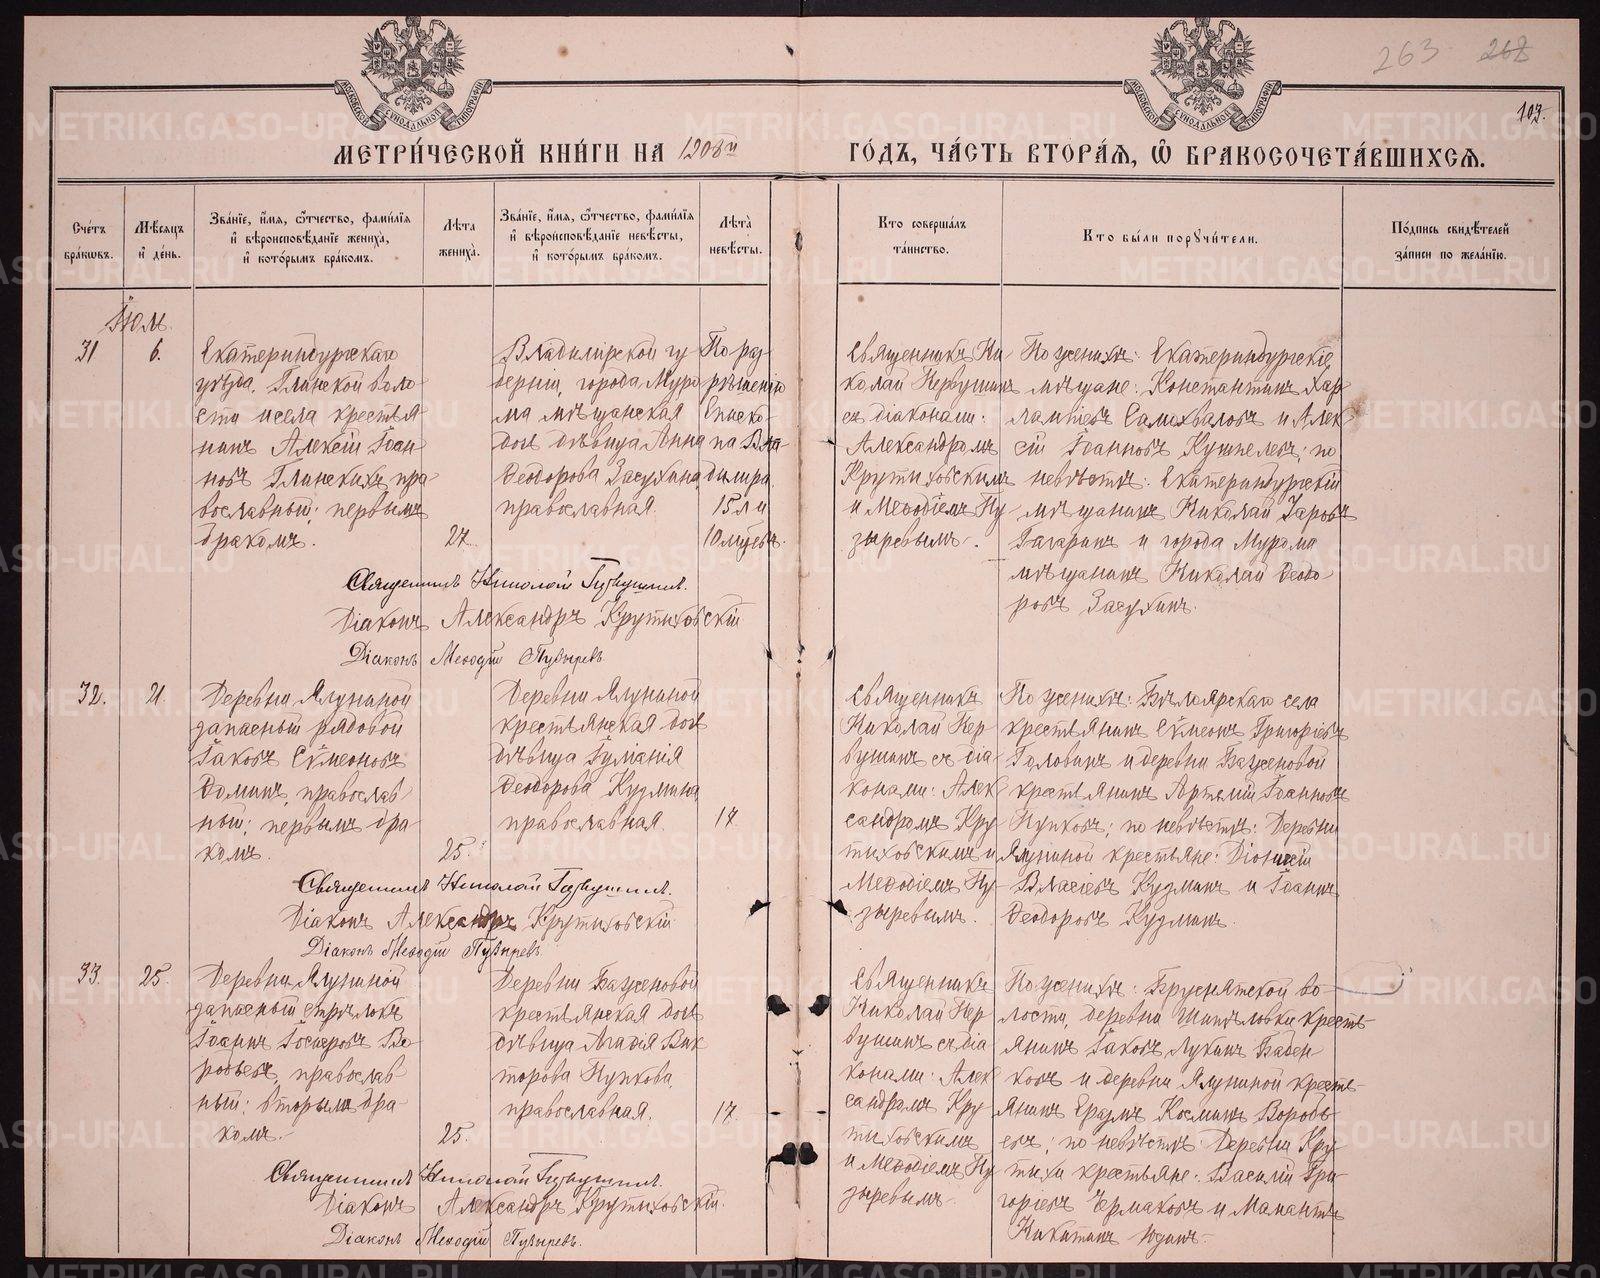 263 267
107.
МЕТРИ́ЧЕСКОЙ КНИ́ГИ НА 1908й ГО́ДЪ, ЧА́СТЬ ВТОРА́Я, Ѽ БРАКОСОЧЕТА́ВШИХСЯ.
Сче́тъ бра́кѡвъ.
Мѣ́сяцъ и҆ де́нь.
Зва́нїе, и҆́мя, ѻ҆́тчество, фами́лїя и҆ вѣроисповѣ́данїе жениха̀, и҆ кото́рымъ бра́комъ.
Лѣ́та жениха̀.
Зва́нїе, и҆́мя, ѻ҆́тчество, фами́лїя и҆ вѣроисповѣ́данїе невѣ́сты, и҆ кото́рымъ бра́комъ.
Лѣ́та невѣ́сты.
Кто соверша́лъ та́инство.
Кто бы́ли порꙋчи́тели.
По́дпись свидѣ́телей за́писи по жела́нїю.
Іюль
31
6.
Екатеринбургскаго
уѣзда, Глинской воло
сти и села крестья
нинъ Алексій Іоан
новъ Глинскихъ, пра
вославный; первымъ
бракомъ.
27.
Владимірской гу
берніи, города Муро
ма мѣщанская
дочь дѣвица Анна
Ѳеодорова Засухина,
православная.
По раз-
рѣшенію
Еписко-
па Вла-
диміра.
15 л и
10 мѣсяцевъ.
Священникъ Ни
колай Первушинъ
съ діаконами:
Александромъ
Крутиховскимъ
и Меѳодіемъ Пу
зыревымъ.
По женихѣ: Екатеринбургскіе
мѣщане: Константинъ Хар
лампіевъ Самохваловъ и Алек-
сій Іоанновъ Кушпелевъ; по
невѣстѣ: Екатеринбургскій
мѣщанинъ Николай Уаровъ
Гагаринъ и города Мурома
мѣщанинъ Николай Ѳеодо-
ровъ Засухинъ.
Священникъ Николай Первушинъ.
Діаконъ Александръ Крутиховскій
Діаконъ Меѳодій Пузыревъ.
32.
21.
Деревни Ялуниной
запасный рядовой
Іаковъ Сѵмеоновъ
Ѳоминъ, православ
ный; первымъ бра
комъ.
25.
Деревни Ялуниной
крестьянская дочь
дѣвица Іуліанія
Ѳеодорова Кузмина,
православная.
17
Священникъ
Николай Пер
вушинъ съ діа
конами: Алек
сандромъ Кру
тиховскимъ и
Меѳодіемъ Пу
зыревымъ.
По женихѣ: Бѣлоярскаго села
крестьянинъ Сѵмеонъ Григоріевъ
Головинъ и деревни Баженовой
крестьянинъ Артемій Іоанновъ
Пупковъ; по невѣстѣ: Деревни
Ялуниной крестьяне: Діонисій
Власіевъ Кузминъ и Іоаннъ
Ѳеодоровъ Кузминъ.
Священникъ Николай Первушинъ.
Діаконъ Александръ Крутиховскій
Діаконъ Меѳодій Пузыревъ.
33.
25.
Деревни Ялуниной
запасный стрѣлокъ
Іоаннъ Іосифовъ Во
робьевъ, православ
ный; вторымъ бра
комъ.
25.
Деревни Баженовой
крестьянская дочь
дѣвица Агаѳія Вик
торова Пупкова,
православная.
17.
Священникъ
Николай Пер
вушинъ съ діа
конами: Алек
сандромъ Кру
тиховскимъ
и Меѳодіемъ Пу
зыревымъ.
По женихѣ: Бруснятской во-
лости, деревни Шипѣловки кресть-
янинъ Іаковъ Лукинъ Бабен-
ковъ и деревни Ялуниной кресть-
янинъ Еразмъ Косминъ Воробь-
евъ; по невѣстѣ: Деревни Кру
тихи крестьяне: Василій Гри-
горіевъ Чермаковъ и
Никитинъ Юдинъ.
Священникъ Николай Первушинъ.
Діаконъ Александръ Крутиховскій.
Діаконъ Меѳодій Пузыревъ.